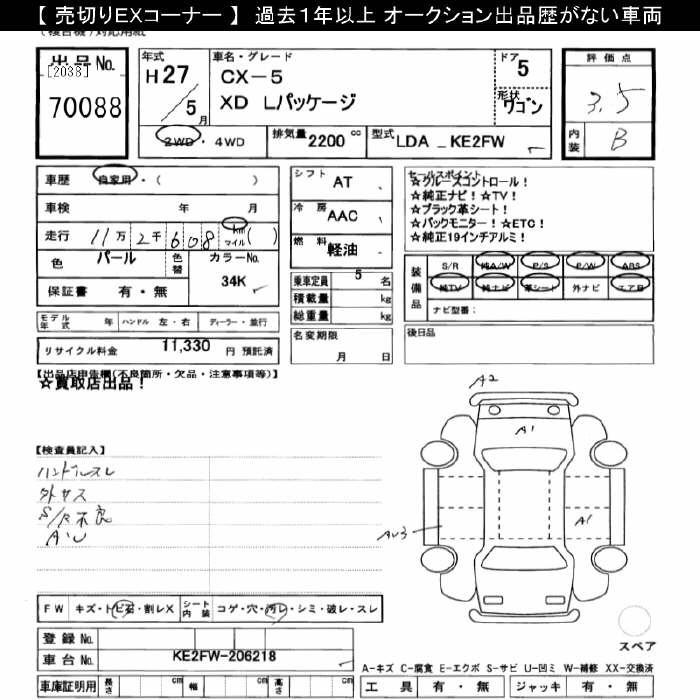 【 売切りEXコーナー 】 過去１年以上 オークション出品歴がない車両
出品No.
[2038]
70088
年式
H27
5 月
車名・グレード
CX-5
XD Lパッケージ
ドア
5
形状
ワゴン
評価点
3.5
内装
B
2WD・4WD
排気量 2200 cc
型式 LDA _ KE2FW
車歴 自家用・( )
車検 年 月
走行 11万 2千 608 km マイル ( )
色 パール
色替
カラーNo.
34K
保証書 有・無
シフト AT
冷房 AAC
燃料 軽油
乗車定員 5 名
積載量 kg
総重量 kg
セールスポイント
☆クルーズコントロール！
☆純正ナビ！☆TV！
☆ブラック革シート！
☆バックモニター！☆ETC！
☆純正19インチアルミ！
装備品
S/R 純A/W P/S P/W ABS
純TV 純ナビ 革シート 外ナビ エアB
ナビ型番：
モデル年式 年 ハンドル 左・右 ディーラー・並行
名変期限
月 日
後日品
リサイクル料金 11,330 円 預託済
【出品店申告欄(不良箇所・欠品・注意事項等)】
☆買取店出品！
【検査員記入】
ハンドルスレ
外キズ
S/R不良
AU
A2
A1
A1
AU3
FW キズ・トビ石・割レX
シート内装 コゲ・穴・汚レ・シミ・破レ・スレ
登録No.
車台No. KE2FW-206218
スペア
A-キズ C-腐食 E-エクボ S-サビ U-凹ミ W-補修 XX-交換済
車庫証明用 長さ cm 幅 cm 高さ cm
工具 有・無 ジャッキ 有・無